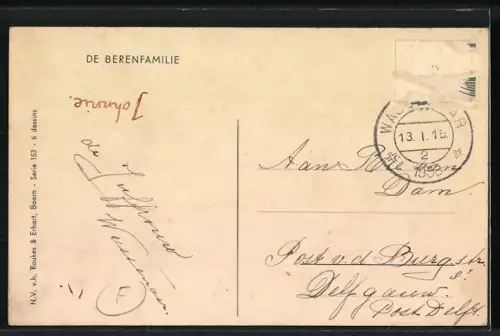 DE BERENFAMILIE
Johnnie.
de Juffrouw
N.V. v.h. Roukes & Erhart, Baarn - Serie 153 - 6 dessins
13.I.16.
2
Aan
Dam
Post v.d. Burgstr
8
Delfgauw.
Post Delft.